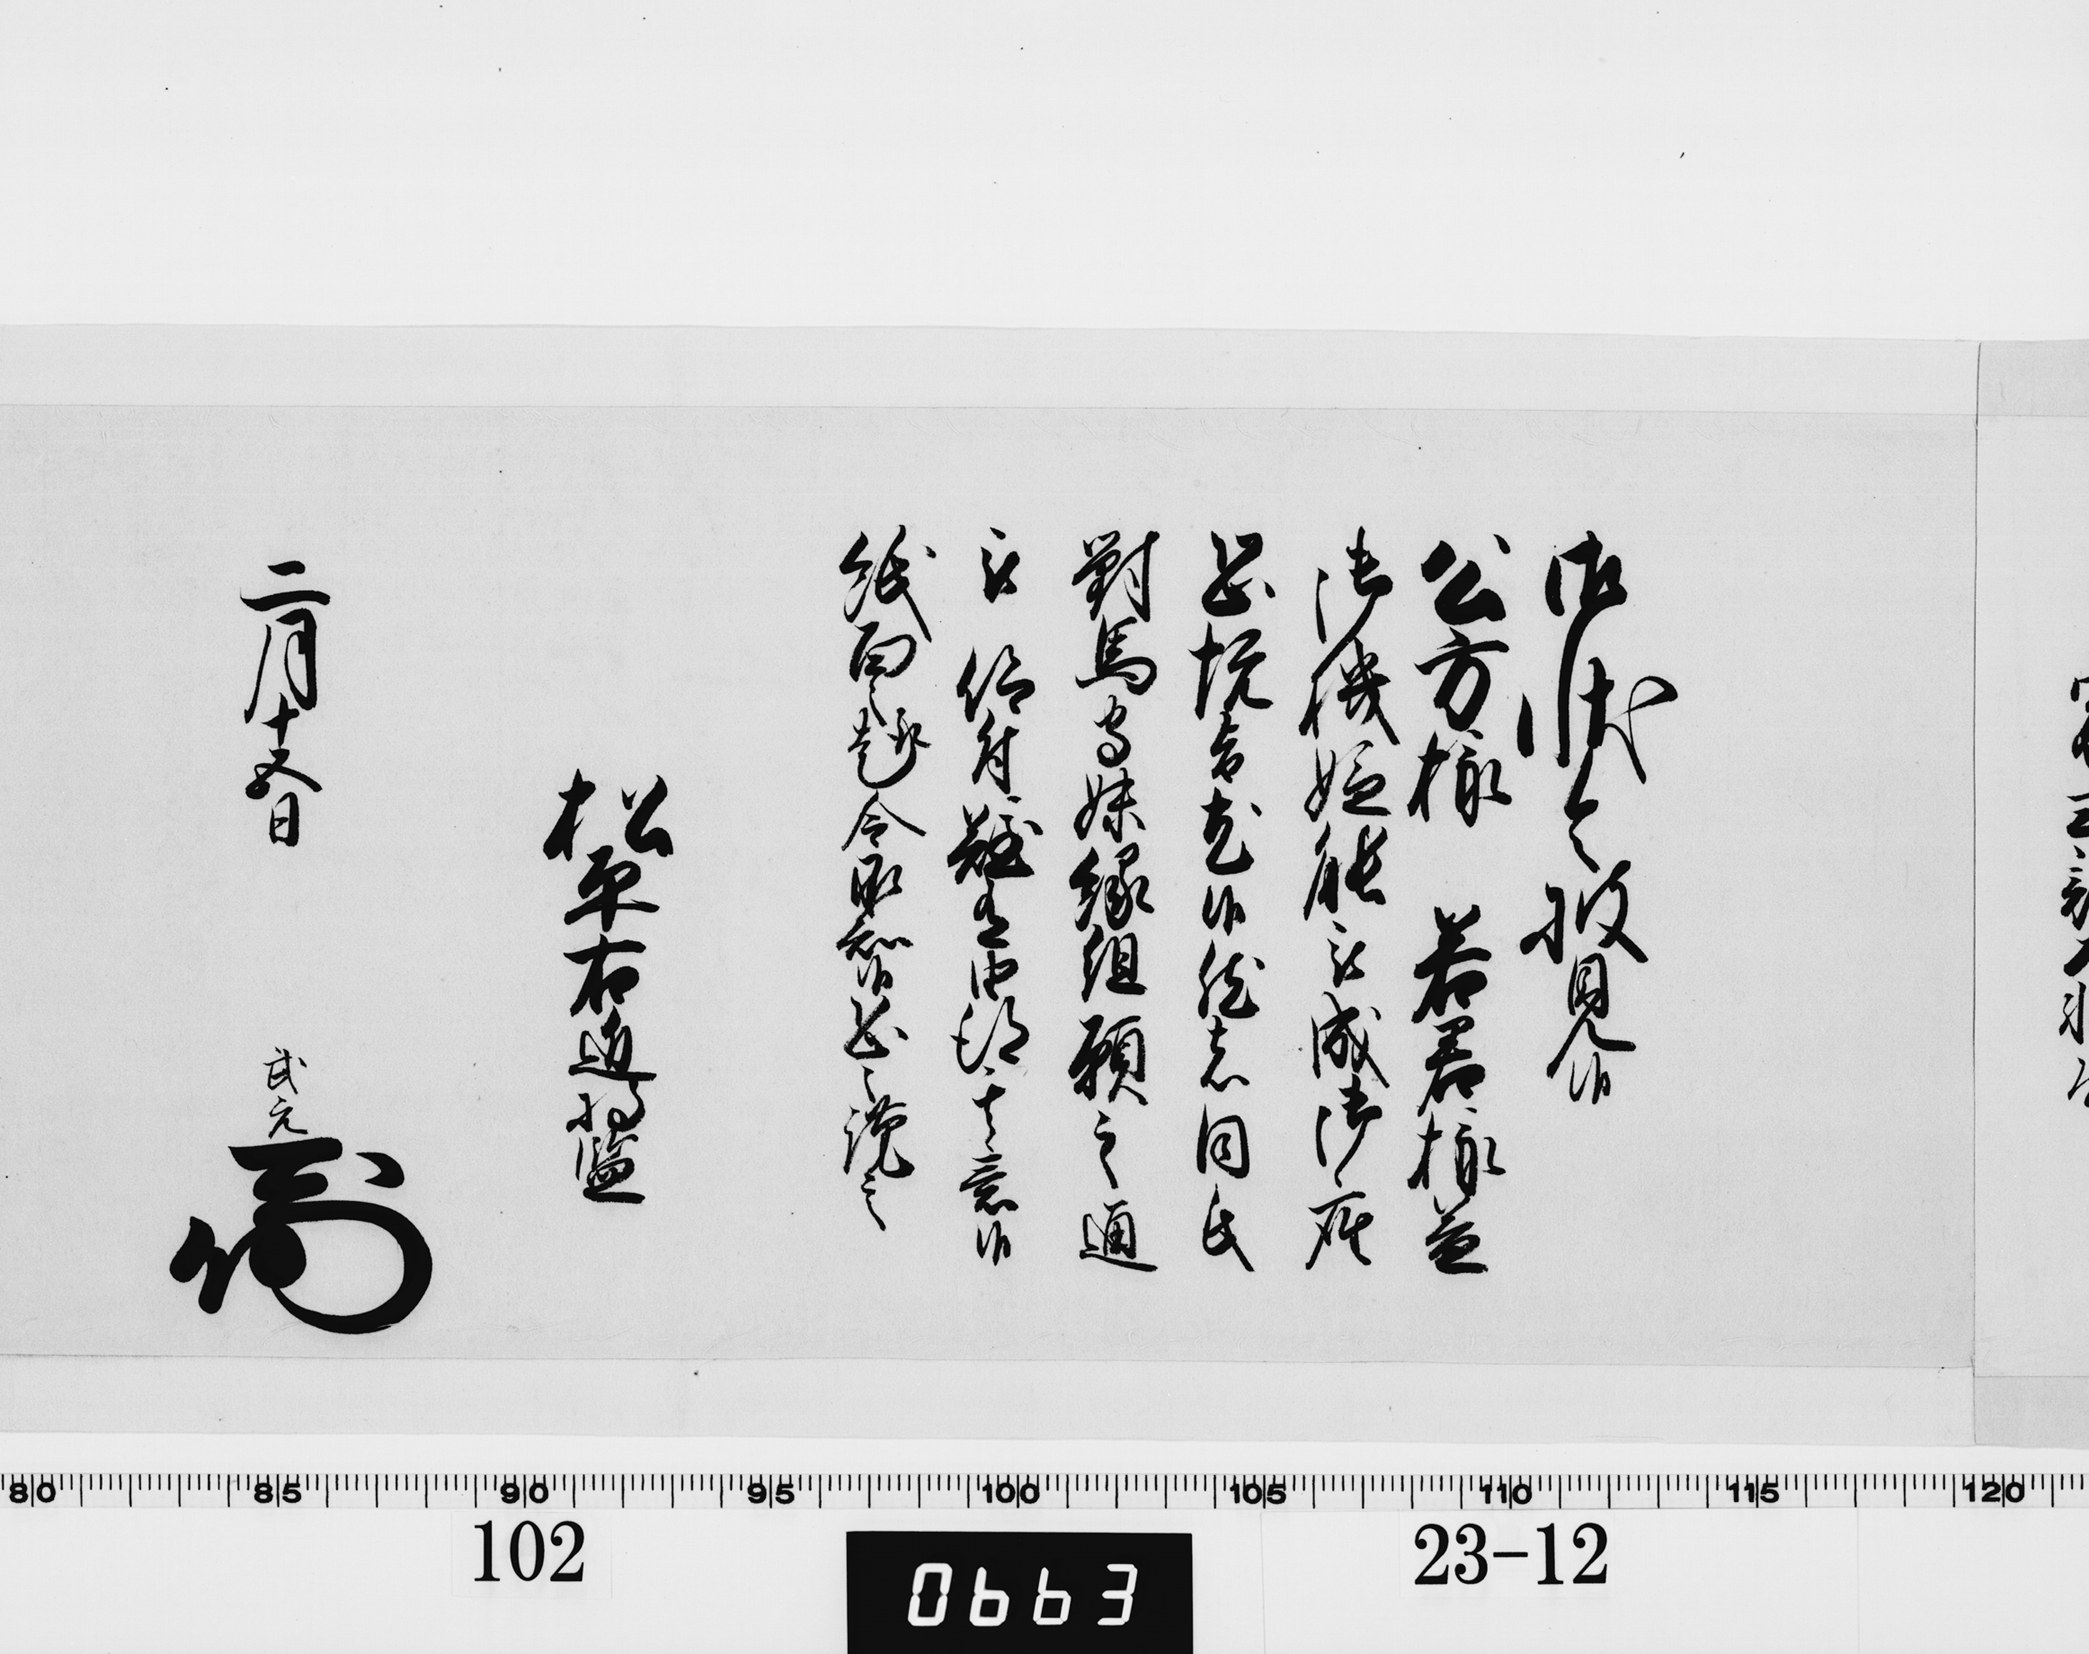 御状令披見候
公方様 若君様益
御機嫌能被成御座
恐悦旨尤候然者同氏
對馬守妹縁組願之通
被 仰付難有由得其意候
紙面之趣令承知候恐々謹言
松平右近将監
二月十五日
武元
80 85 90 95 100 105 110 115 120
102
0663
23-12